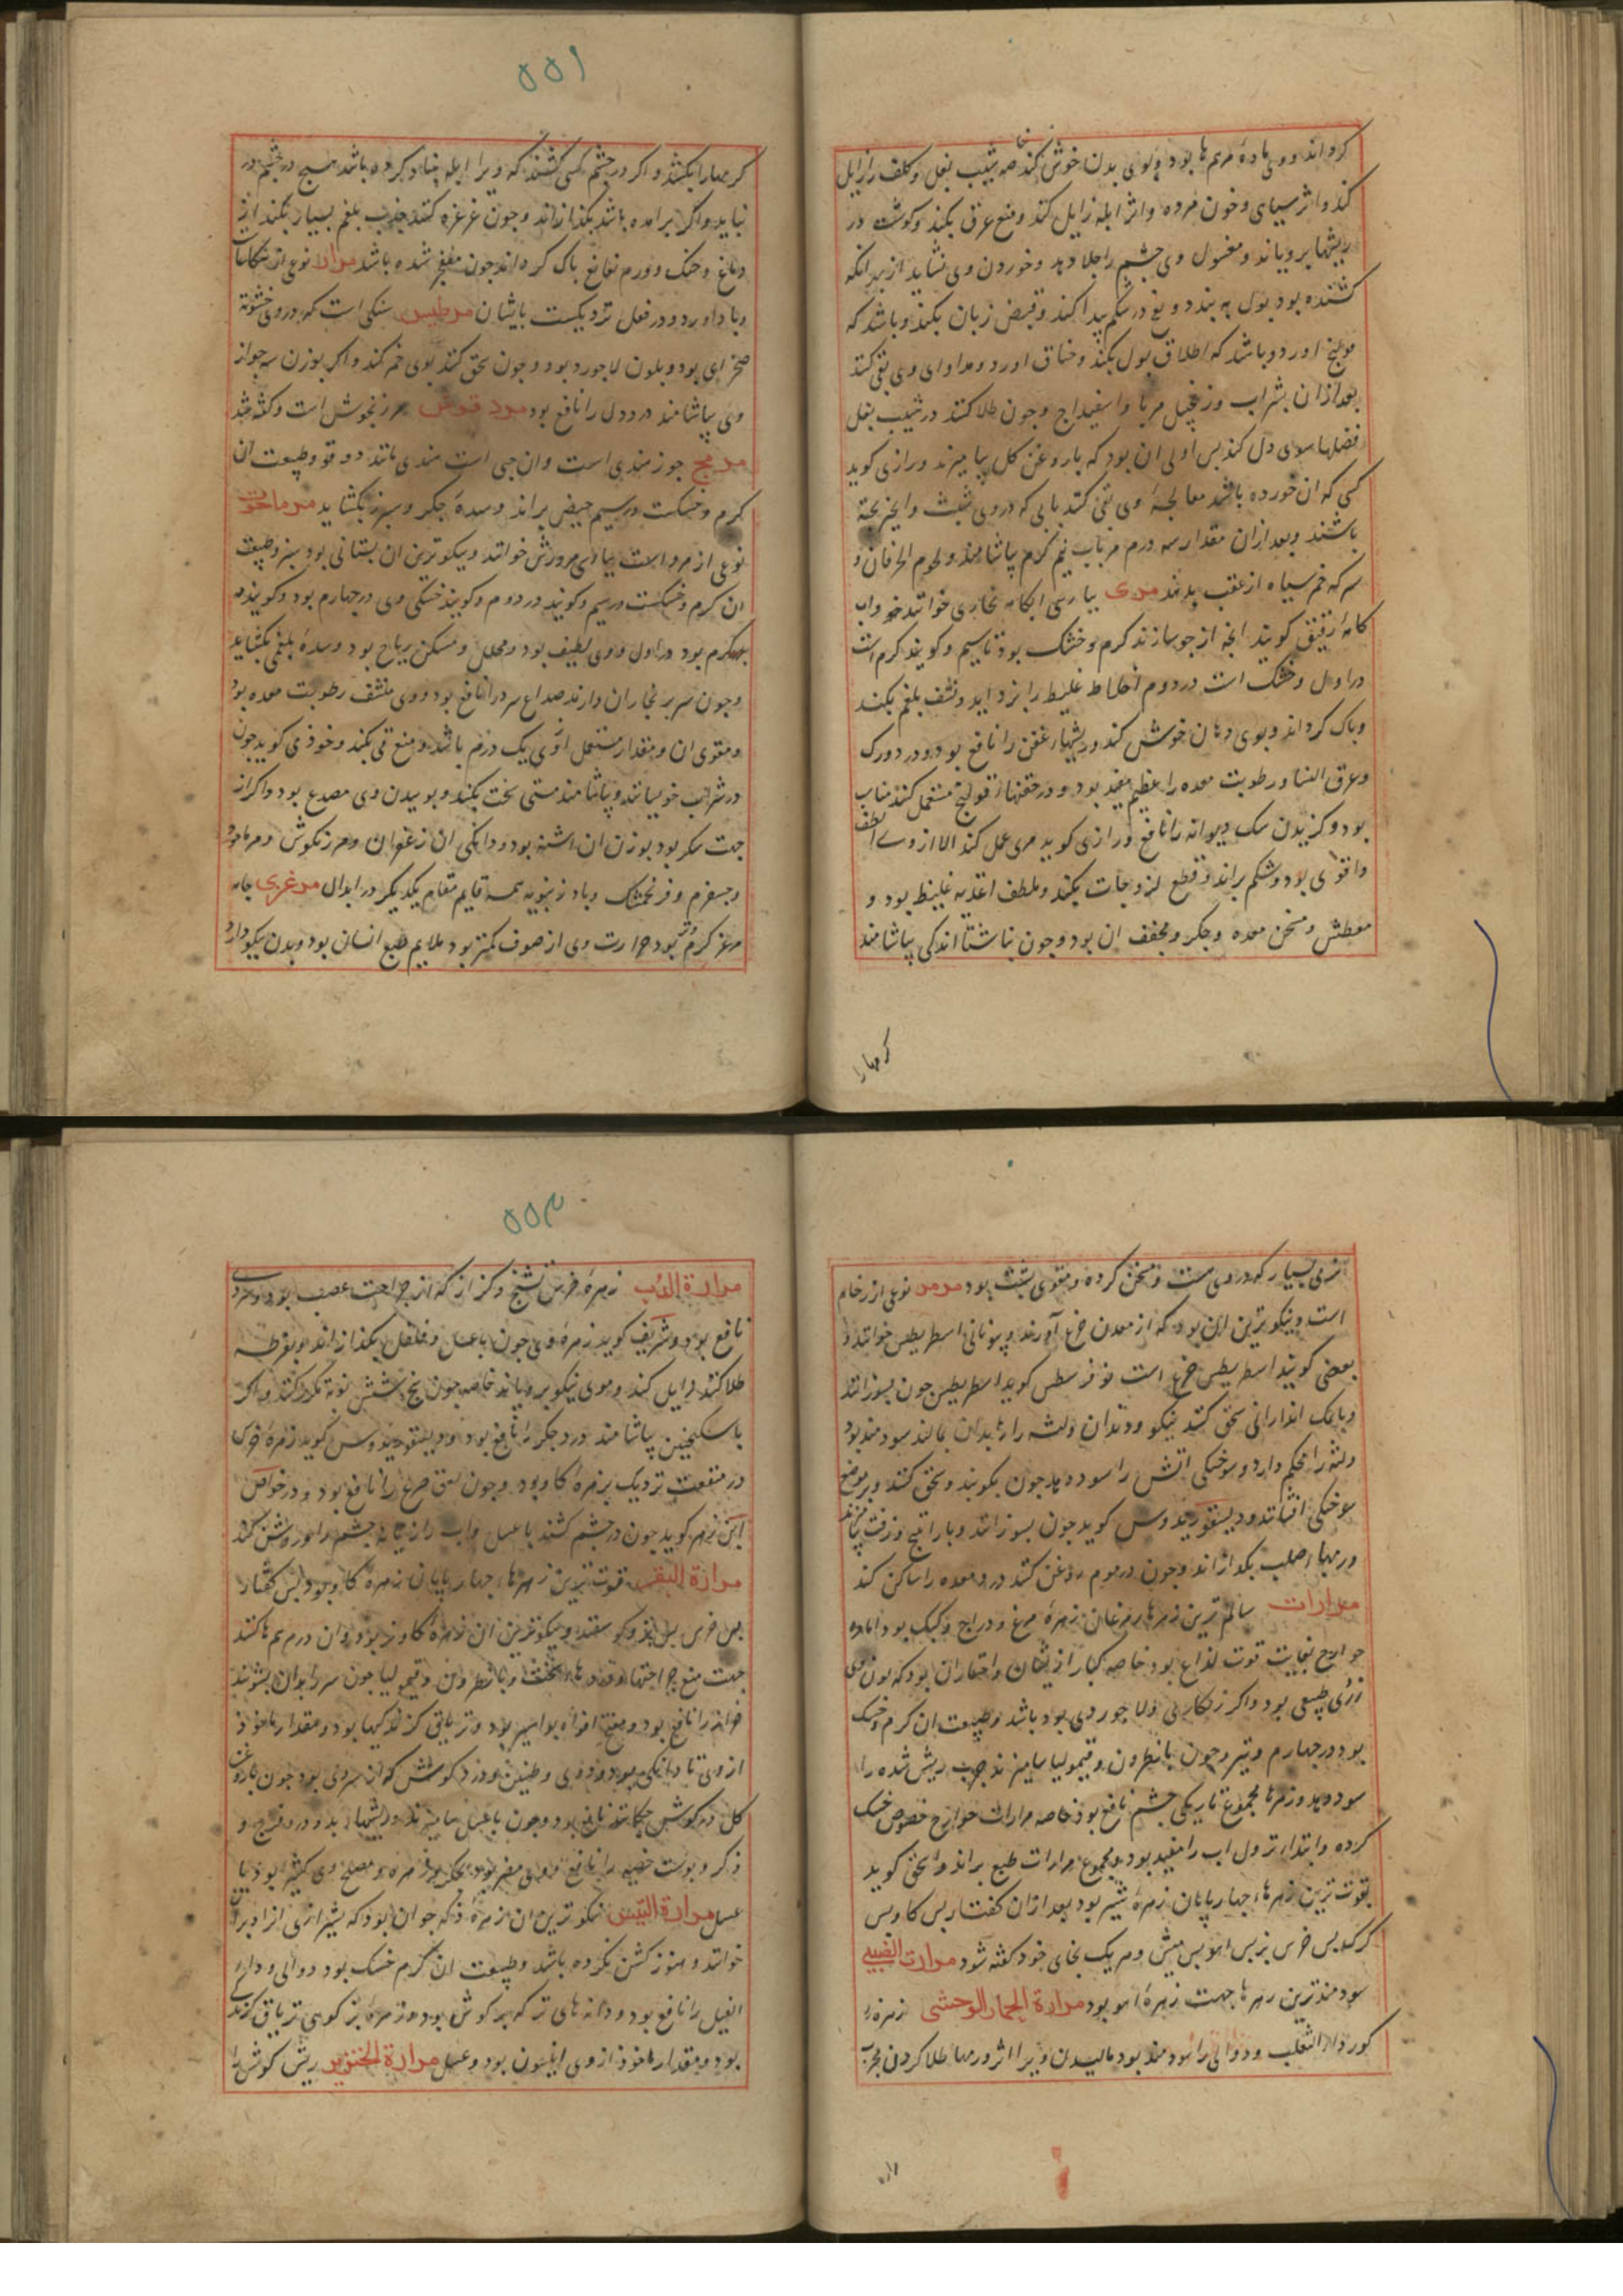 کرداند ووی مادهٔ مرهم ها بود و بوی بدن خوش کند خاصه شیب بغل و کلف را زایل
کند و اثر سیاهی و خون مرده و اثر ابله زایل کند و منع عرق بکند و کوشت در
ریشها برویاند و مغسول وی چشم را جلا دهد و خوردن وی نشاید از بهر انکه
کشنده بود بول به بندد و نفخ در شکم پیدا کند و قبض زبان بکند و باشد که
اورد و باشد که اطلاق بول بکند و خناق اورد و مداوای وی بقی کنند
بعد ازان بشراب و زنجبیل مربا و اسفیداج و چون طلا کنند در شیب بغل
فضلها سوی دل کند بس اولی ان بود که با روغن کل بیامیزند و رازی کوید
کسی که ان خورده باشد معالجهٔ وی بقی کنند بابی که دروی شبت و انجیر پخته
باشند و بعد ازان مقدار سه درم مر باب نیم کرم بیاشامند و لحوم الخرفان و
سرکه خم سیاه از عقب بدهند مری بپارسی ابکامه بخاری خوانند
کامهٔ رقیق کویند انچه از جو سازند کرم و خشک بود تا سیم و کویند کرم است
در اول و خشک است در دوم اخلاط غلیظ را بزداید و نشف بلغم بکند
و پاک کرداند و بوی دهان خوش کند و ریشهاء عفن را نافع بود و درد ورک
و عرق النسا و رطوبت معده را عظیم مفید بود و در حقنها از قولنج مستعمل کنند مناسب
بود و کزیدن سک دیوانه را نافع و رازی کوید مری عمل کند الا از وی الطف
واقوی بود و شکم براند و قطع لزوجات بکند و ملطف اغذیه غلیظ بود و
معطش و مسخن معده و جکر و مجفف ان بود و چون ناشتا اندکی بیاشامند
کرمها را
۵۵۱
کرمها را بکشد و اکر در چشم کسی کشند که ویرا ابله بنیاد کرده باشد هیچ در چشم در
نیاید و اکر برامده باشد بکدازاند و چون غرغره کنند جذب بلغم بسیار بکند از
دماغ و حنک و ورم نغانغ پاک کرداند چون منفجر شده باشد مراد نوعی از
و باداورد و در فعل نزدیکست بایشان مرطیس سنکی است که دروی خشونة
صخرای بود و بلون لاجورد بود و چون سحق کنند بوی خمر کند و اکر بوزن سه جو از
وی بیاشامند درد دل را نافع بود مرد قوش مرزنجوش است و کفته شد
مرنج جوز مندی است و ان حبی است مندی مانند دوقو و طبیعت ان
کرم و خشکست در سیم حیض براند و سدهٔ جکر و سپرز بکشاید مرماحوز
نوعی از مرو است بپارسی مروزش خوانند و نیکوترین ان بستانی بود سبز و طبیعت
ان کرم و خشکست در سیم و کویند در دوم و کویند خشکی وی در چهارم بود و کویند
کرم بود در اول و وی لطیف بود و محلل و مسکن ریاح بود و سدهٔ بلغمی بکشاید
و چون سر بر بخار ان دارند صداع سرد را نافع بود و وی منشف رطوبت معده بود
و مقوی ان و مقدار مستعمل از وی یک درم باشد و منع قی بکند و خوذی کوید چون
در شراب خویسانند و بیاشامند مستی سخت بکند و بوییدن وی مصدع بود و اکر از
جهت سکر بود بوزن ان اشنه بود و دانکی ان زعفران و مرزنکوش و مرماحوز
و جسفرم و فرنجمشک و بادرنجبویه همه قایم مقام یکدیکر در ابدال مرغزی جامه
مرغز کرم بود حرارت وی از صوف کمتر بود ملایم طبع انسان بود و بدن نیکو دارد
نرمی بسیار که دروی هست و مسخن کرده و مقوی پشت بود مرمر نوعی از رخام
است و نیکوترین ان بود که از معدن جزع آورند و بیونانی اسطریطس خوانند و
بعضی کویند اسطریطس جزع است کوید اسطریطس چون بسوزانند
و با نمک اندرانی سحق کنند نیکو و دندان و لثه را بدان بمالند سودمند بود
و لثه را محکم دارد و سوختکی اتش را سود دهد چون بکوبند و سحق کنند و بر موضع
سوختکی افشانند و دیسقوریدوس کوید چون بسوزانند و با راتینج و زفت بیامیزند
ورمهاء صلب بکدازاند و چون در موم روغن کنند درد معده را ساکن کند
مرارات سالم ترین زهرها زهرهٔ مرغان زهرهٔ مرغ و دراج و کبک بود اما زهره
جوارح بغایت قوت لذاع بود خاصه کبار از ایشان و اختیار ان بود که بلون وی
زردی طبیعی بود و اکر زنکاری و لاجوردی بود باشد و طبیعت ان کرم و خشک
بود در چهارم و تیر و چون بانطرون و قیمولیا بیامیزند جرب ریش شده را
سود دهد و زهرها مجموع تاریکی چشم نافع بود خاصه مرارات جوارح خصوص خشک
کرده و ابتداء نزول اب را مفید بود و مجموع مرارات طبع براند و اسحق کوید
بقوت ترین زهرهاء چهارپایان زهرهٔ شیر بود بعد ازان کفتار بس کاو بس
کرک بس خرس بزبس اهو بس میش و هر یک بجای خود کفته شود مرارت الضبی
سودمندترین زهرها جهت زهرهٔ اهو بود مرارة الحمار الوحشی زهرهٔ
کور داء الثعلب و دوالی را سودمند بود مالیدن ویرا اثر ورمها طلا کردن مجرب
۵۵۲
مرارة الدب زهرهٔ خرس تشنج و کزاز که از جراحت عصب بود و سردی
نافع بود و شریف کوید زهرهٔ وی چون باعسل و فلفل بکدازاند و بقرطه
طلا کنند زایل کند و موی نیکو برویاند خاصه چون پنج شش نوبة مکرر کنند و اکر
باسکنجبین بیاشامند درد جکر را نافع بود و دیسقوریدوس کوید زهرهٔ خرس
در منفعت نزدیک بزهرهٔ کاو بود و چون لعق صرع را نافع بود و در خواص
ابن زهر کوید چون در چشم کشند باعسل و اب رازیانه چشم را روشن کند
مرارة البقر بقوت ترین زهرهاء چهارپایان زهرهٔ کاو بود بس کفتار
بس خرس بس بز و کوسفند و نیکوترین ان زهرهٔ کاو نر بود و ان در مرهم ها کنند
جهت منع جراحتها و بانطرون و قیمولیا چون سر را بدان بشویند
حزاز را نافع بود و مفتح افواه بواسیر بود و تریاق کزندکیها بود و مقدار ماخوذ
از وی تا دانکی بود و دوی و طنین و درد کوش که از سردی بود چون باروغن
کل در کوش چکانند نافع بود و چون باعسل بیامیزند و ریشهاء بد و درد فرج و
ذکر و پوست خصیه را نافع و مصلح وی کثیرا بود با
عسل مرارة التیس نیکوترین ان زهرهٔ ذکه جوان بود که بشیرازی ازا دبر
خوانند و هنوز کشن نکرده باشد و طبیعت ان کرم خشک بود دوالی و داء
الفیل را نافع بود و دانه های تر که بر کوش بود و زهرهٔ بز کوهی تریاق کزندکی
بود و مقدار ماخوذ از وی اینسون بود و عسل مرارة الخنزیر ریش کوش را